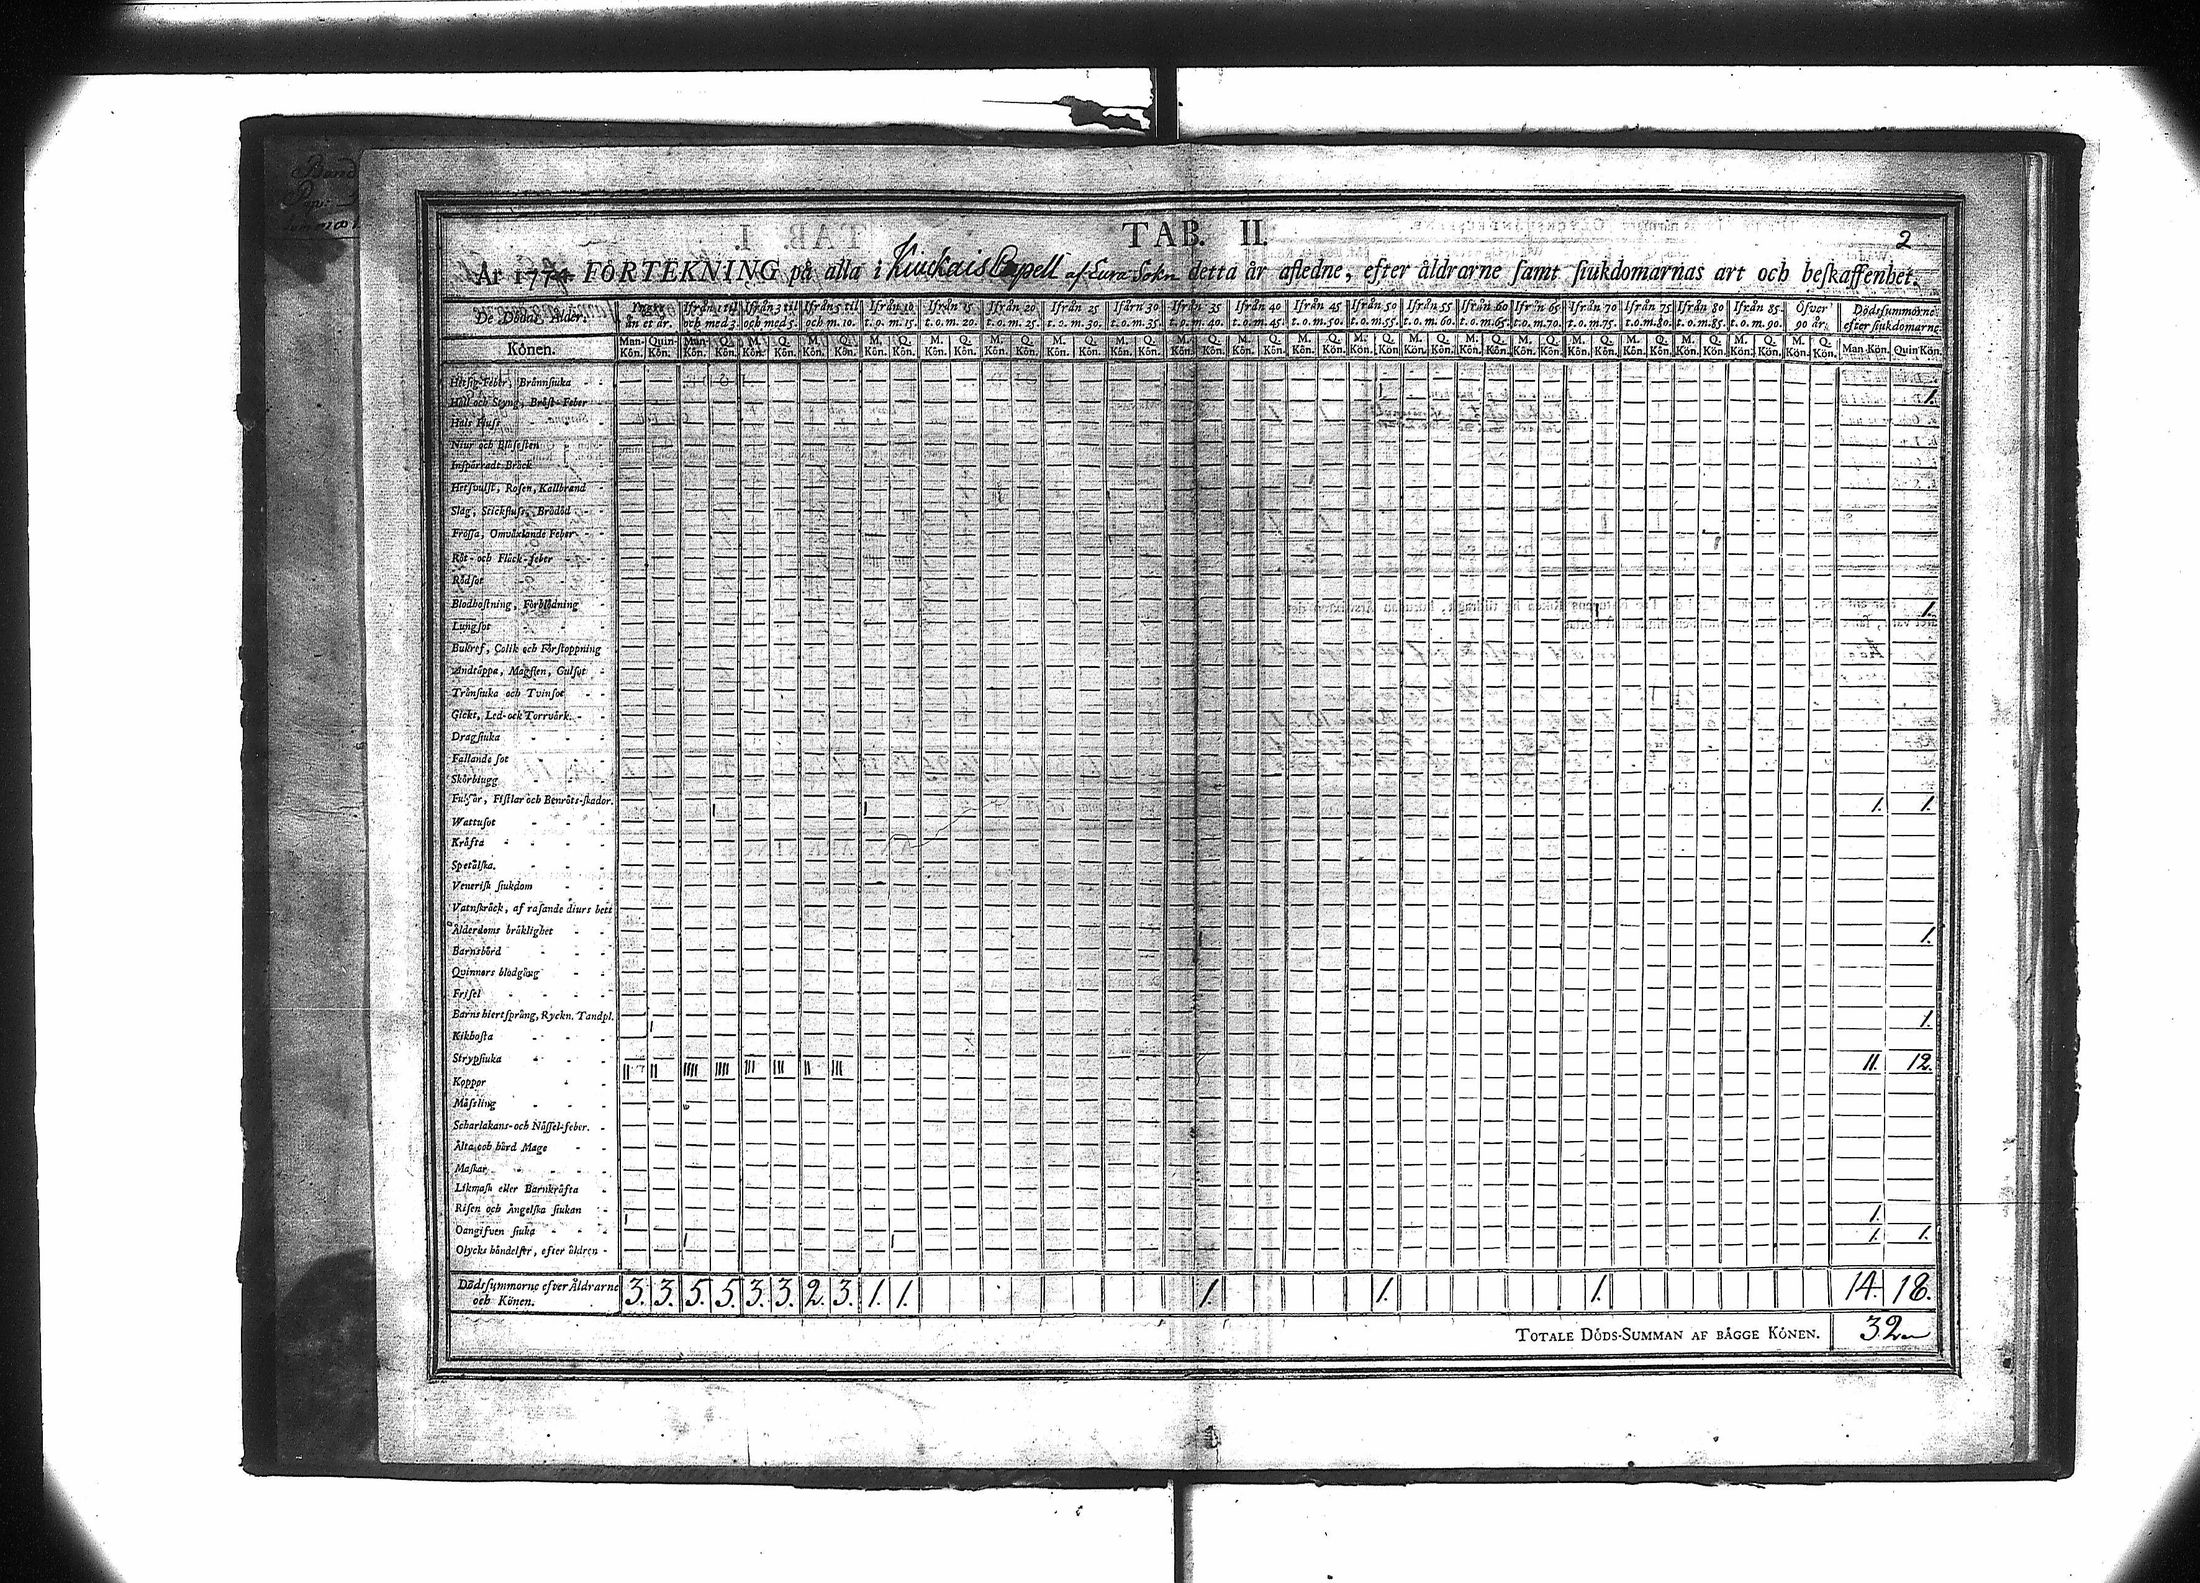 2
TAB. II.
År 1774 FÖRTEKNING på alla i Kiuckais Capell af Eura Sokn detta år afledne, efter åldrarne samt siukdomarnas art och beskaffenhet.
De Dödas Ålder. Yngre än et år. Ifrån 1 til och med 3. Ifrån 3 til och med 5. Ifrån 5 til och m. 10. Ifrån 10 t. o. m. 15. Ifrån 15 t. o. m. 20. Ifrån 20 t. o. m. 25. Ifrån 25 t. o. m. 30. Ifårn 30 t. o. m. 35. Ifrån 35 t. o. m. 40. Ifrån 40 t. o. m. 45. Ifrån 45 t. o. m. 50. Ifrån 50 t. o. m. 55. Ifrån 55 t. o. m. 60. Ifrån 60 t. o. m. 65. Ifrån 65 t. o. m. 70. Ifrån 70 t. o. m. 75. Ifrån 75 t. o. m. 80. Ifrån 80 t. o. m. 85. Ifrån 85 t. o. m. 90. Öfver 90 år. Dödssummorne efter siukdomarne.
Könen. Man-Kön. Quin-Kön. Man-Kön. Q. Kön. M. Kön. Q. Kön. M. Kön. Q. Kön. M. Kön. Q. Kön. M. Kön. Q. Kön. M. Kön. Q. Kön. M. Kön. Q. Kön. M. Kön. Q. Kön. M. Kön. Q. Kön. M. Kön. Q. Kön. M. Kön. Q. Kön. M. Kön. Q. Kön. M. Kön. Q. Kön. M. Kön. Q. Kön. M. Kön. Q. Kön. M. Kön. Q. Kön. M. Kön. Q. Kön. M. Kön. Q. Kön. M. Kön. Q. Kön. M. Kön. Q. Kön. Man Kön. Quin Kön.
Hetsig Feber, Brännsiuka
Håll och Styng, Bröst-Feber 1.
Hals Fluss
Niur och Blåsesten
Inspärradt Bråck
Hetsvulst, Rosen, Kallbrand
Slag, Stickfluss, Brådöd
Frossa, Omväxlande Feber
Röt- och Fläck-feber
Rödsot
Blodhostning, Förblödning 1.
Lungsot
Bukref, Colik och Förstoppning
Andtäppa, Magsten, Gulsot
Trånsiuka och Tvinsot
Gickt, Led- och Torrvärk.
Dragsiuka
Fallande sot
Skörbiugg
Fulsår, Fistlar och Benröts-skador. 1. 1.
Wattusot
Kräfta
Spetälska.
Venerisk siukdom
Vatnskräck, af rasande diurs bett
Ålderdoms bräklighet 1.
Barnsbörd
Qvinnors blodgång
Frisel
Barns hiertsprång, Ryckn. Tandpl. 1.
Kikhosta
Strypsiuka 11. 12.
Koppor
Mässling
Scharlakans- och Nässel-feber.
Älta och hård Mage
Maskar
Likmask eller Barnkräfta
Risen och Angelska siukan 1.
Oangifven siuka 1. 1.
Olycks händelser, efter äldren
Dödssummorne efter Åldrarne och Könen. 3. 3. 5. 5. 3. 3. 2. 3. 1. 1. 1. 1. 1. 14. 18.
TOTALE DÖDS-SUMMAN AF BÄGGE KÖNEN. 32